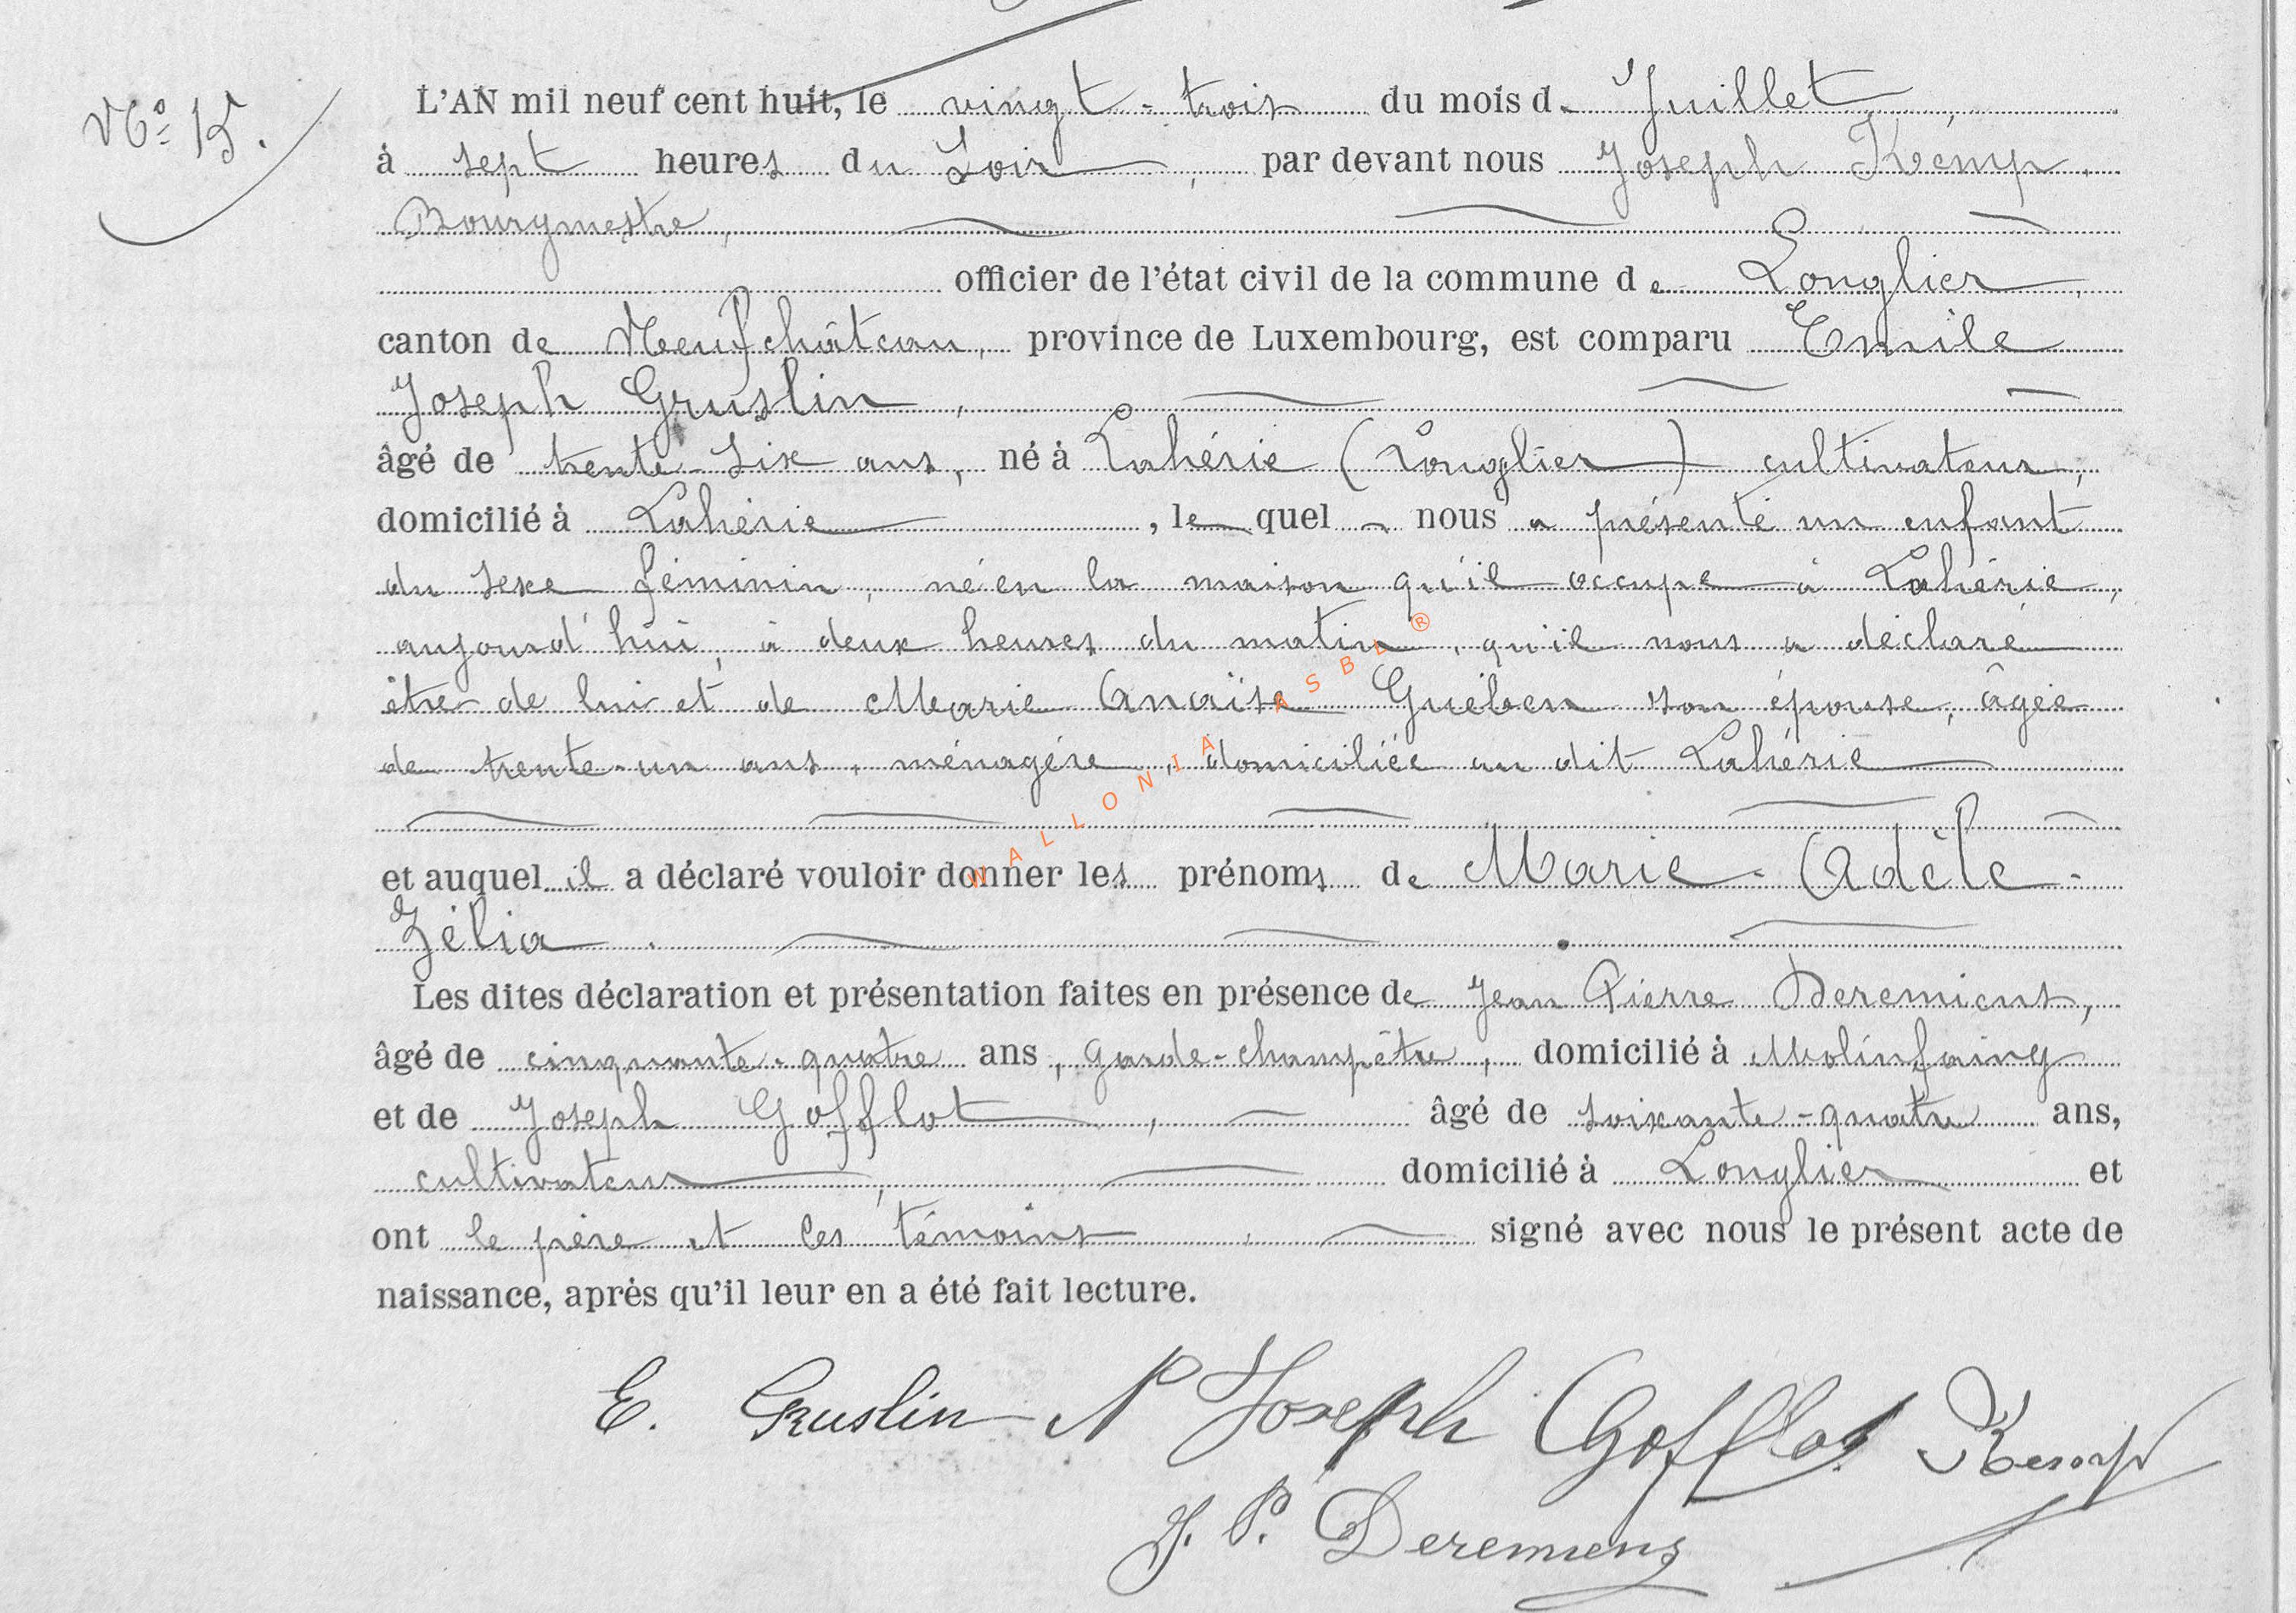 N° 15.
L'AN mil neuf cent huit, le vingt-trois du mois de Juillet,
à sept heures du Soir, par devant nous Joseph Kemp,
Bourgmestre,
officier de l'état civil de la commune de Longlier,
canton de Neufchâteau, province de Luxembourg, est comparu Emile
Joseph Gruslin,
âgé de trente-six ans, né à Lahérie (Longlier) cultivateur,
domicilié à Lahérie, lequel nous a présenté un enfant
du sexe féminin, né en la maison qu'il occupe à Lahérie,
aujourd'hui, à deux heures du matin, qu'il nous a déclaré
être de lui et de Marie Anaïse Guében son épouse, âgée
de trente-un ans, ménagère, domiciliée au dit Lahérie
et auquel il a déclaré vouloir donner les prénoms de Marie-Adèle-
Zélia.
Les dites déclaration et présentation faites en présence de Jean Pierre Deremiens,
âgé de cinquante-quatre ans, garde-champêtre, domicilié à Molinfaing
et de Joseph Gofflot, âgé de soixante-quatre ans,
cultivateur, domicilié à Longlier et
ont le père et les témoins signé avec nous le présent acte de
naissance, après qu'il leur en a été fait lecture.
E. Gruslin N Joseph Gofflot Kemp
J. P. Deremiens
WALLONIA ASBL ®